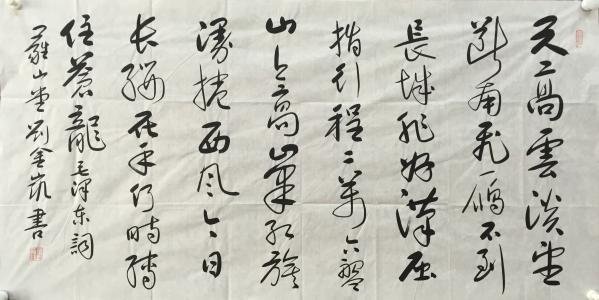 天高雲淡望
斷南飛鴈不到
長城非好漢屈
指行程二萬六盤
山上高峯紅旗
漫捲西風今日
长缨在手何時縛
住蒼龍毛泽东詞
羅山堂劉金凱書